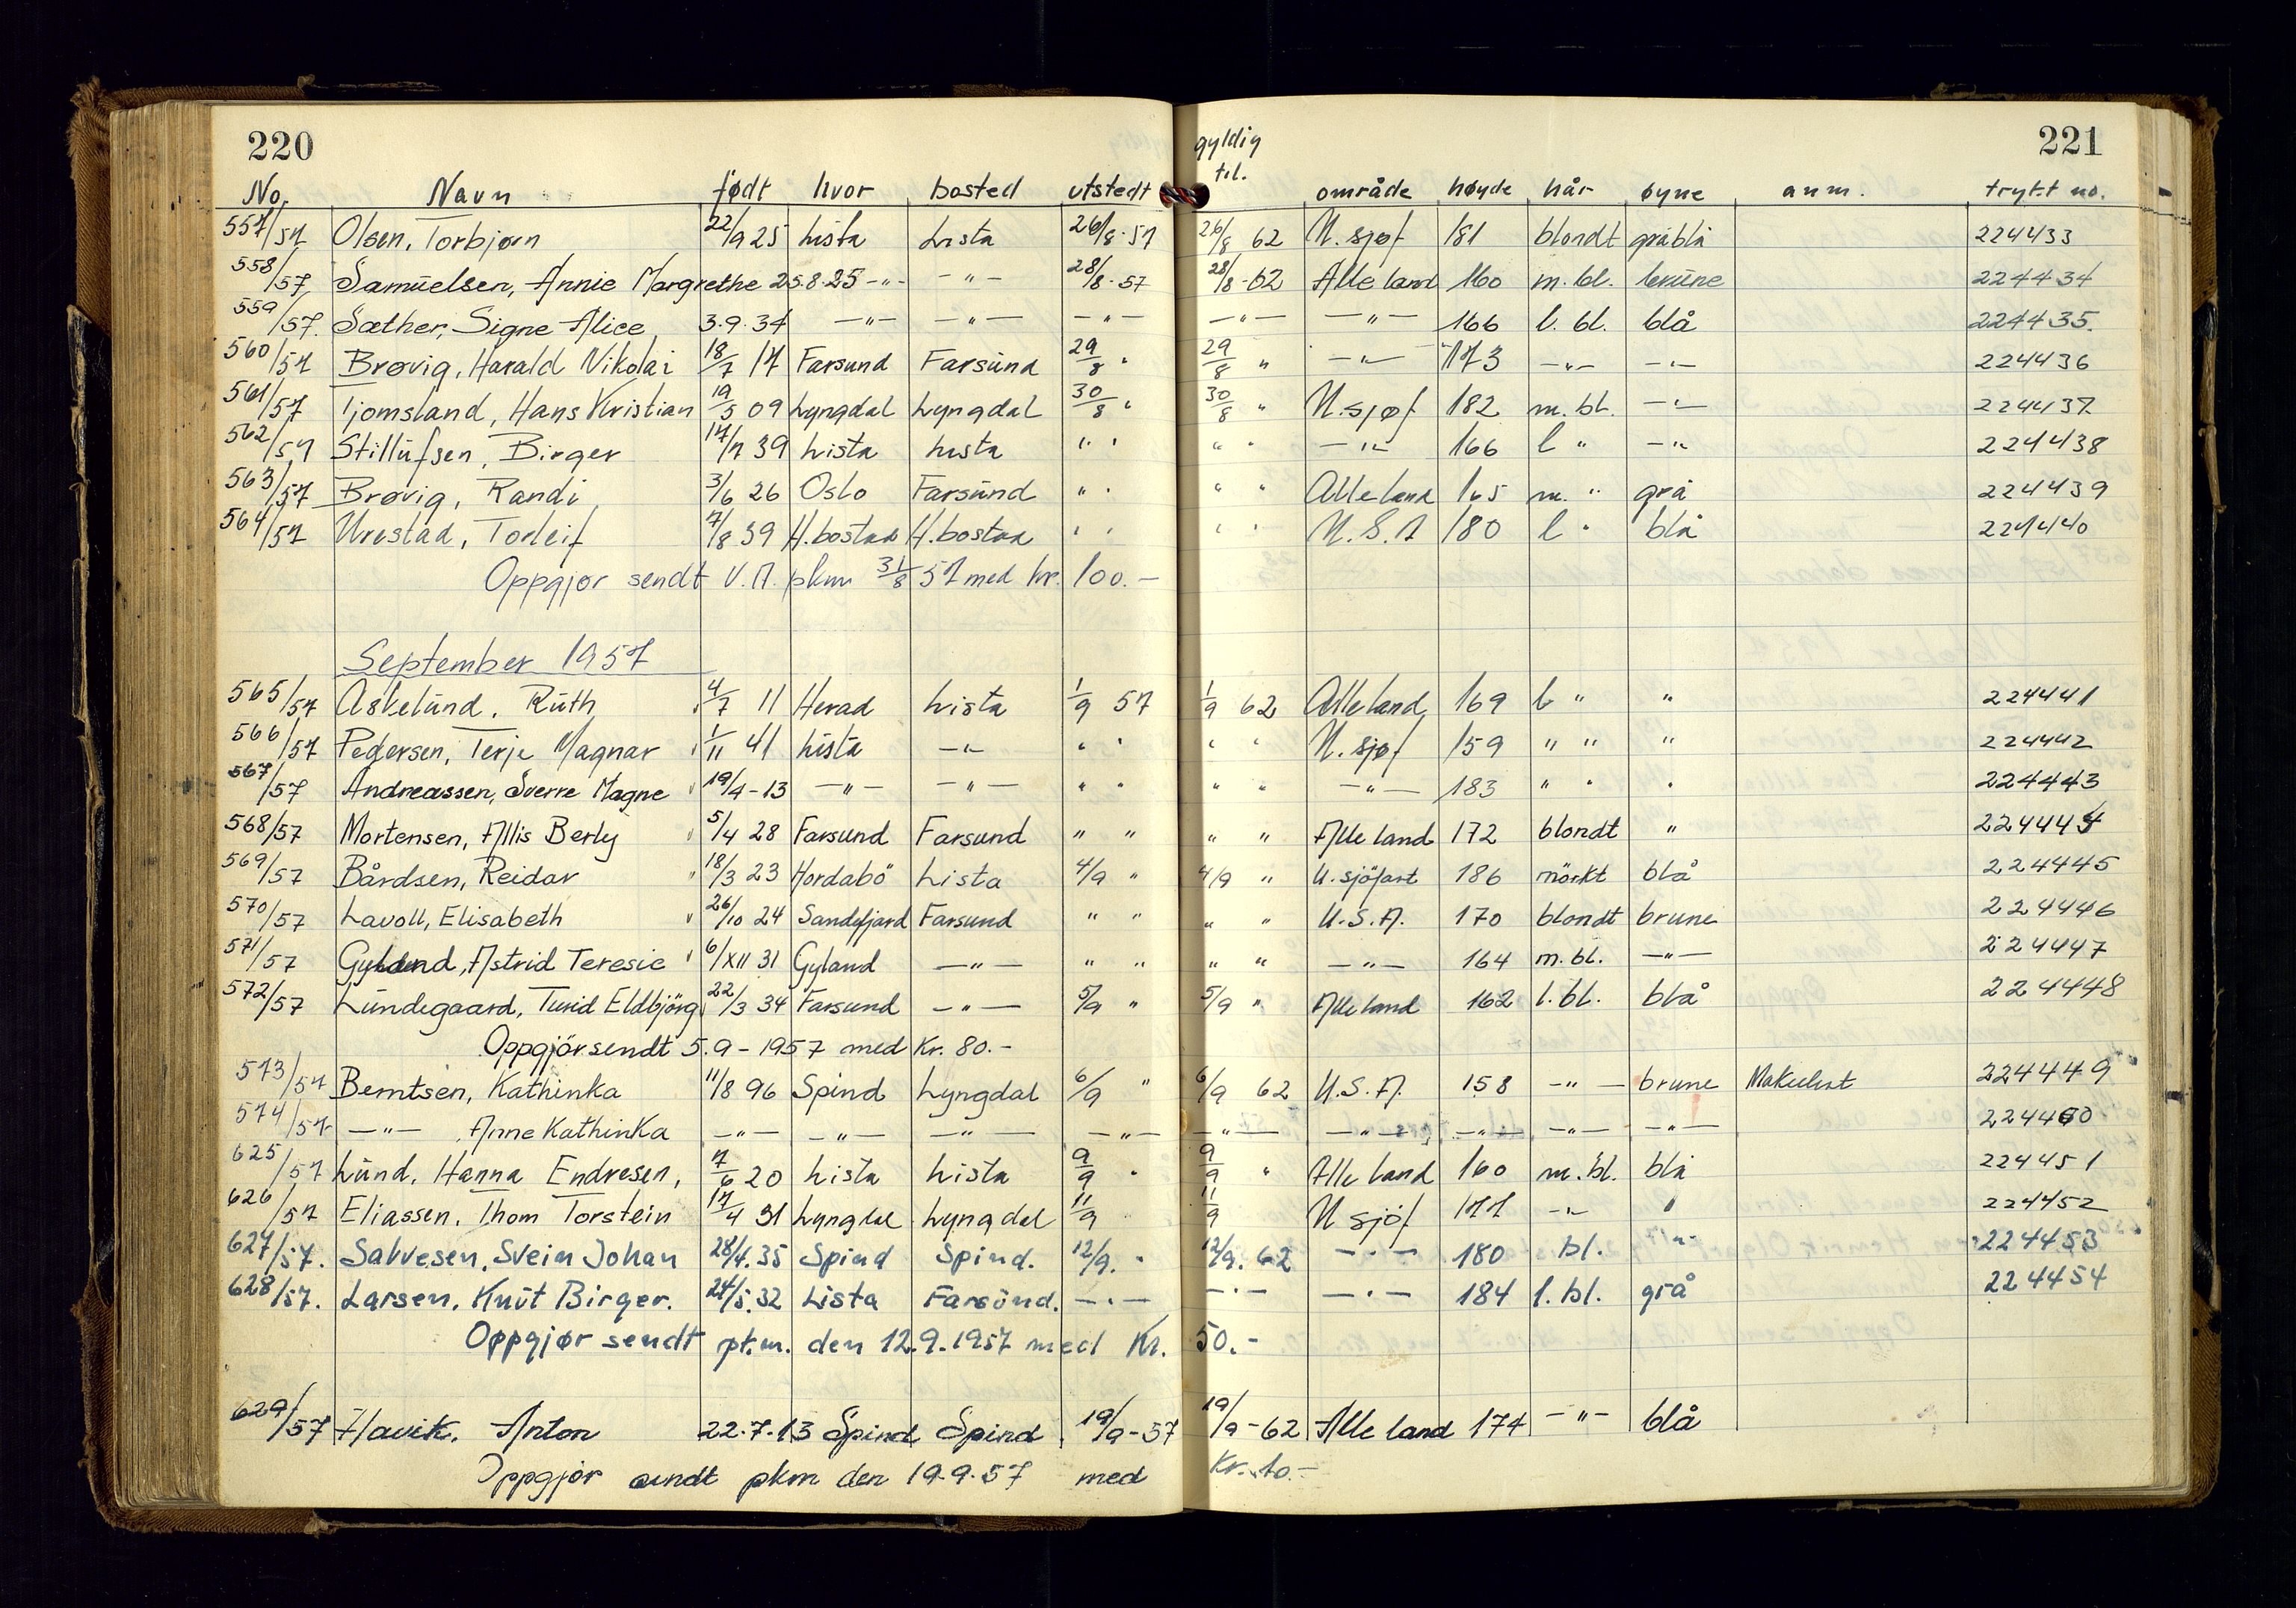 220
gyldig
221
No. Navn født hvor bosted utstedt til. område høyde hår øyne anm. trykt no.
557/57 Olsen, Torbjørn 22/9 25 Lista Lista 26/8-57 26/8 62 U. sjøf 181 blondt gråblå 224433
558/57 Samuelsen, Annie Margrethe 25.8.25 -"- -"- 28/8-57 28/8-62 Alle land 160 m.bl. brune 224434
559/57. Sæther, Signe Alice 3.9.34 -"- -"- -"- -"- -"- 166 l. bl. blå 224435.
560/57 Brøvig, Harald Nikolai 18/7 17 Farsund Farsund 29/8 " 29/8 " -"- 173 -"- -"- 224436
561/57 Tjomsland, Hans Kristian 19/5 09 Lyngdal Lyngdal 30/8 " 30/8 " U.sjøf 182 m.bl. -"- 224437
562/57 Stillufsen, Birger 17/7 39 Lista Lista " " " " -"- 166 l " -"- 224438
563/57 Brøvig, Randi 3/6 26 Oslo Farsund " " " " Alle land 165 m. " grå 224439
564/57 Urestad, Torleif 7/8 39 H.bostad H.bostad " " " " U.S.A 180 l " blå 224440
Oppgjør sendt V.A. pkm 31/8 57 med kr. 100.-
September 1957
565/57 Askelund, Ruth 4/7 11 Herad Lista 1/9 57 1/9 62 Alle land 169 l " " 224441
566/57 Pedersen, Terje Magnar 1/11 41 Lista -"- " " " " U. sjøf 159 " " " 224442
567/57 Andreassen, Sverre Magne 19/4-13 -"- -"- " " " " -"- 183 " " " 224443
568/57 Mortensen, Allis Berly 5/4 28 Farsund Farsund " " " " Alle land 172 blondt " 224444
569/57 Bårdsen, Reidar 18/3 23 Hordabö Lista 4/9 " 4/9 " U.sjöfart 186 mörkt blå 224445
570/57 Lavoll, Elisabeth 26/10 24 Sandefjord Farsund " " " " U.S.A. 170 blondt brune 224446
571/57 Gyland, Astrid Teresie 6/XII 31 Gyland -"- " " " " -"- 164 m.bl. -"- 224447
572/57 Lundegaard, Turid Eldbjörg 22/3 34 Farsund -"- 5/9 " 5/9 " Alle land 162 l.bl. blå 224448
Oppgjör sendt 5.9-1957 med Kr. 80.-
573/57 Berntsen, Kathinka 11/8 96 Spind Lyngdal 6/9 " 6/9 62 U.S.A. 158 -"- brune Makulert 224449
574/57 -"- Anne Kathinka -"- -"- -"- -"- -"- -"- -"- -"- -"- 224450
625/57 Lund, Hanna Endresen, 7/6 20 Lista Lista 9/9 " 9/9 " Alle land 160 m.bl. blå 224451
626/57 Eliassen, Thom Torstein 17/4 31 Lyngdal Lyngdal 11/9 11/9 U sjöf 177 -"- " 224452
627/57. Salvesen, Svein Johan 28/4.35 Spind Spind. 12/9. " 12/9. 62 -"- 180 bl. -"- 224453
628/57. Larsen, Knut Birger. 24/5.32 Lista Farsund. -"- -"- -"- 184 l.bl. grå 224454
Oppgjør sendt pt.m. den 12.9.1957 med Kr. 50.-
629/57 Havik, Anton 22.7.13 Spind Spind 19/9-57 19/9-62 Alle land 174 -"- blå
Oppgjør sendt pkm den 19.9.57 med Kr. 10.-